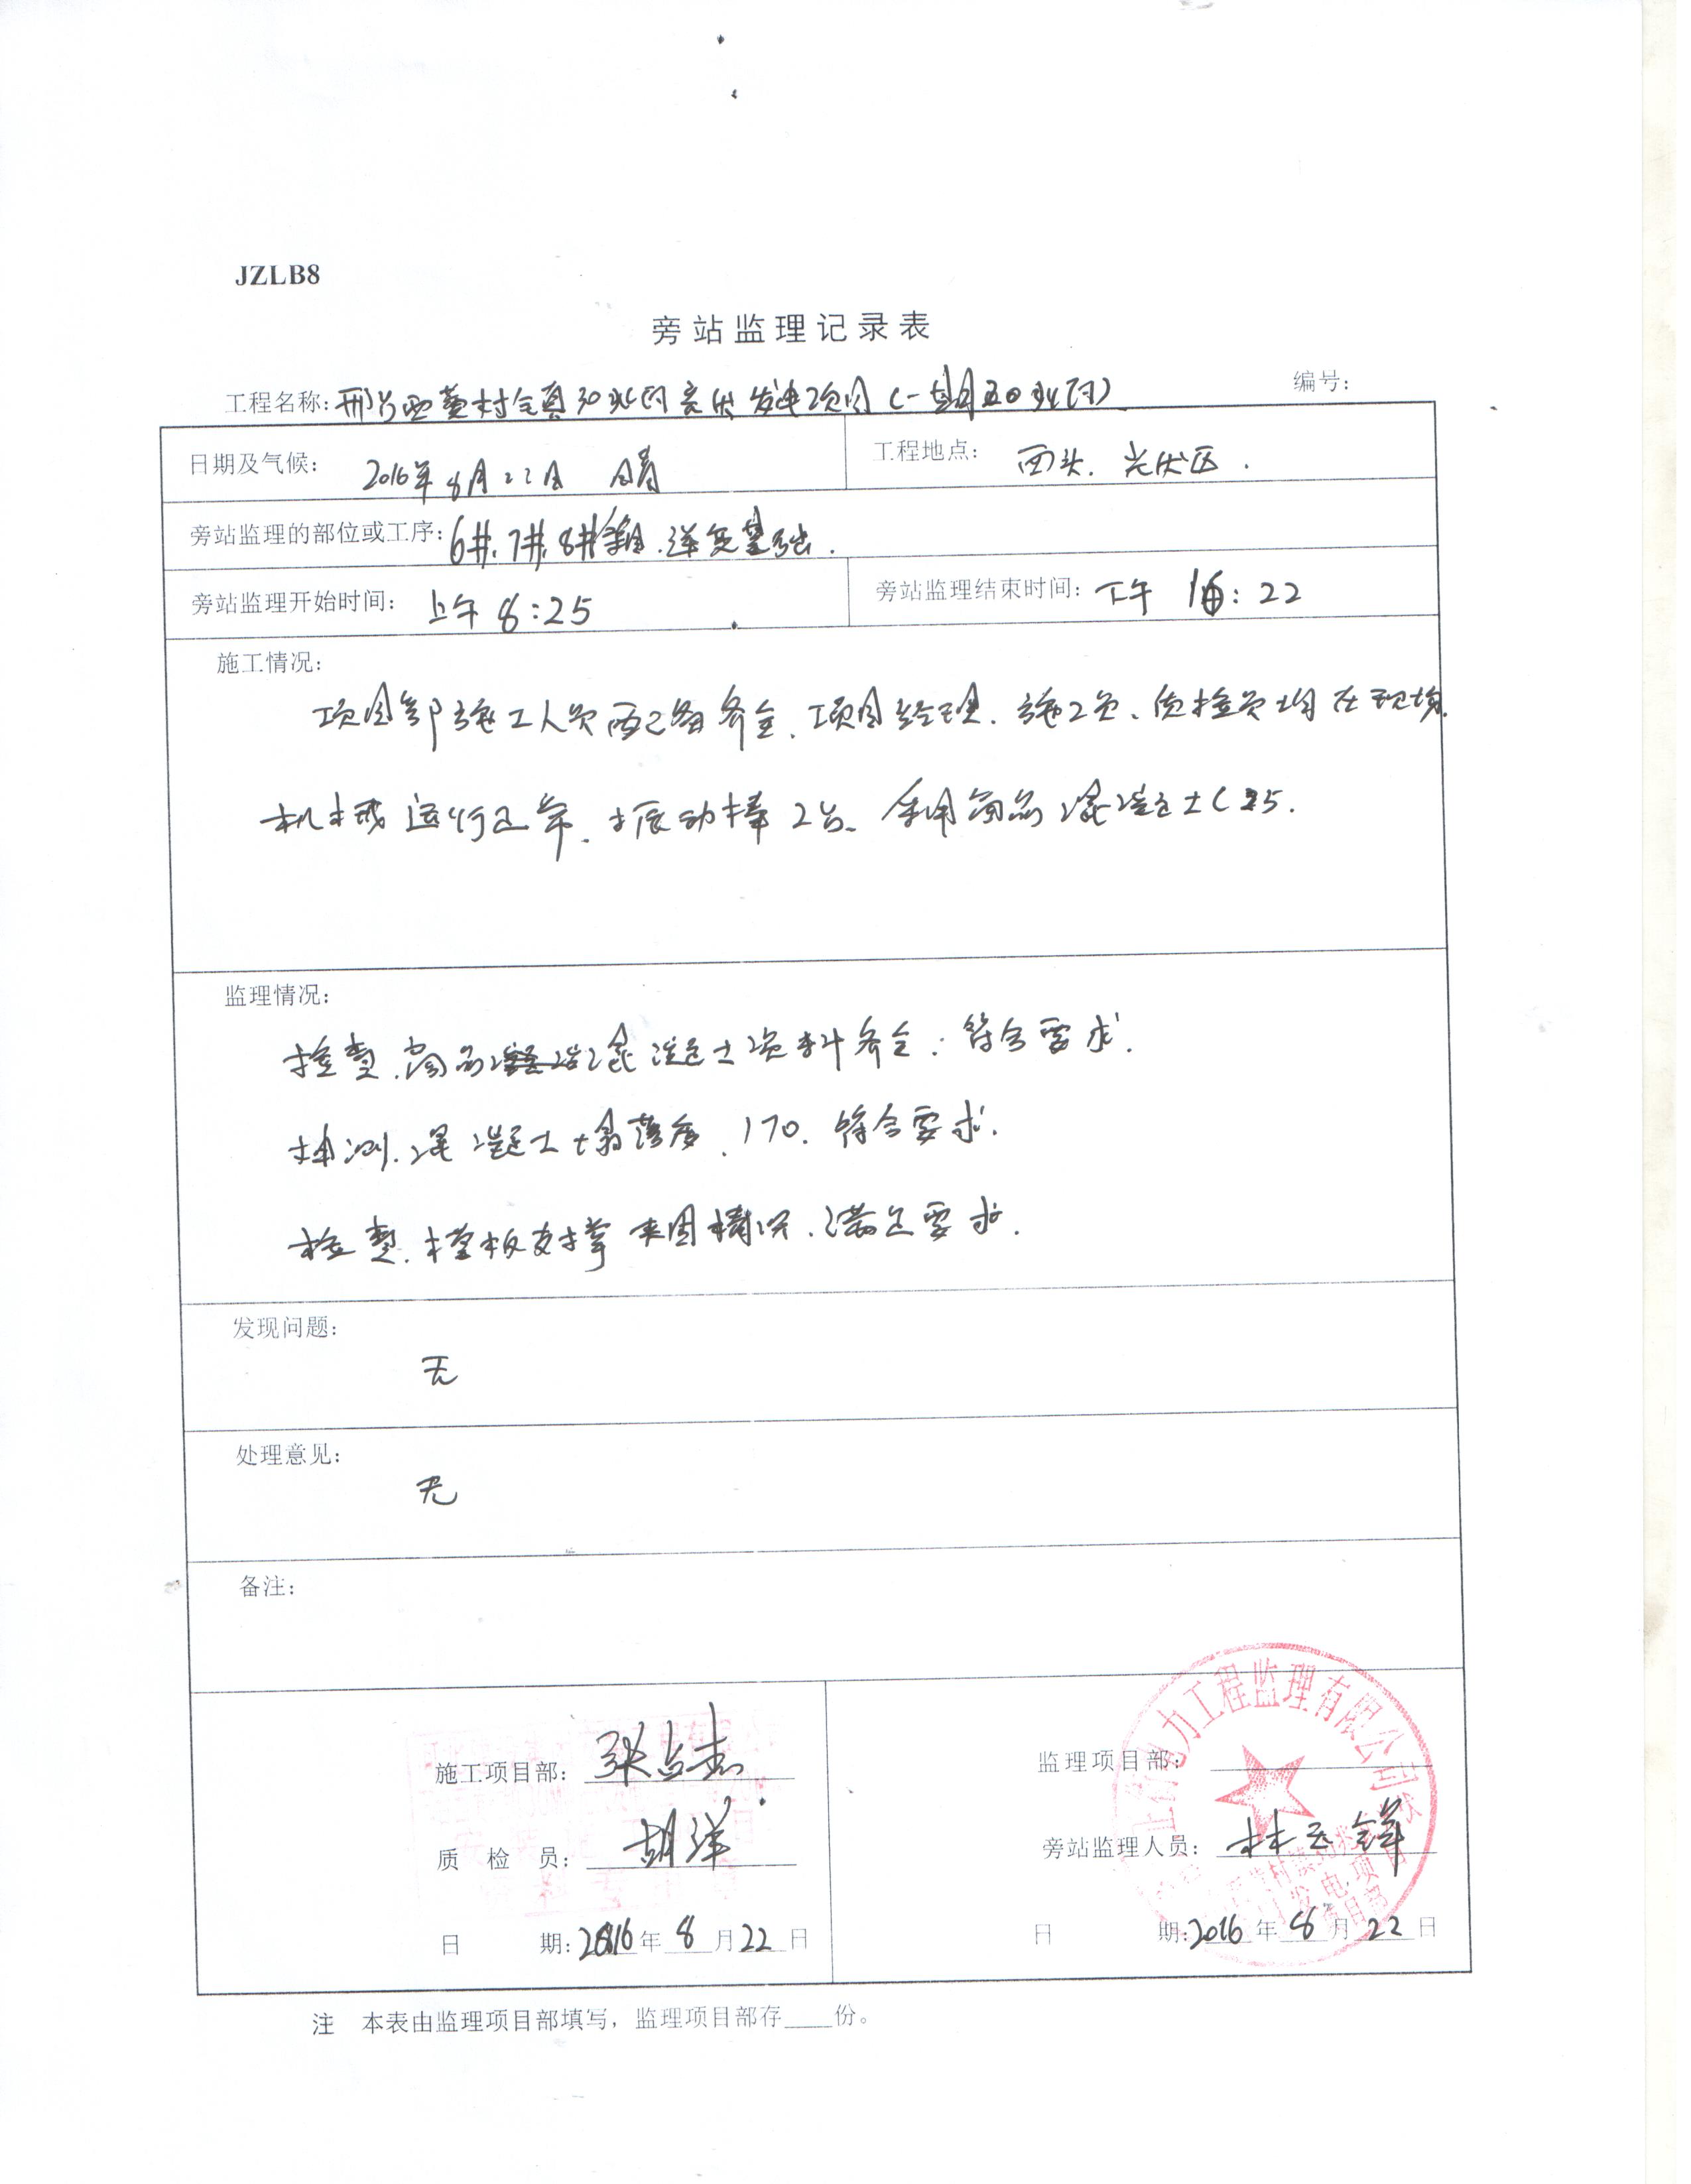 JZLB8
旁站监理记录表
工程名称: 村 30兆 发电项目(一期 20兆瓦) 编号:
日期及气候: 2016年8月22日 晴 工程地点: 西头. 光伏区.
旁站监理的部位或工序: 6#. 7#. 8# 逆变基础.
旁站监理开始时间: 上午 8:25 旁站监理结束时间: 下午 16:22
施工情况:
项目部施工人员配备齐全. 项目经理. 施工员. 质检员均在现场.
机械运行正常. 振动棒2台. 采用商品混凝土C25.
监理情况:
检查. 商品混凝土资料齐全. 符合要求.
抽测. 混凝土坍落度. 170. 符合要求.
检查. 模板支撑 夹固情况. 满足要求.
发现问题:
无
处理意见:
无
备注:
力工程监理有限公司
施工项目部: 张占杰 监理项目部:
质 检 员: 胡洋 旁站监理人员: 林玉锋
发电项目
日 期: 2016年 8 月 22 日 日 期: 2016 年 8 月 22 日
注 本表由监理项目部填写,监理项目部存____份。